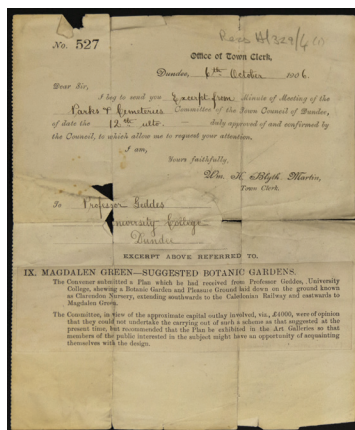 Recs A/329/4 (1)
No. 527
Office of Town Clerk,
Dundee, 6th October 1906.
Dear Sir,
I beg to send you Excerpt from Minute of Meeting of the
Parks & Cemeteries Committee of the Town Council of Dundee,
of date the 12th ulto. duly approved of and confirmed by
the Council, to which allow me to request your attention.
I am,
Yours faithfully,
Wm. H. Blyth Martin,
Town Clerk.
To Professor Geddes
University College
Dundee
EXCERPT ABOVE REFERRED TO.
IX. MAGDALEN GREEN—SUGGESTED BOTANIC GARDENS.
The Convener submitted a Plan which he had received from Professor Geddes, University
College, shewing a Botanic Garden and Pleasure Ground laid down on the ground known
as Clarendon Nursery, extending southwards to the Caledonian Railway and eastwards to
Magdalen Green.
The Committee, in view of the approximate capital outlay involved, viz., £4000, were of opinion
that they could not undertake the carrying out of such a scheme as that suggested at the
present time, but recommended that the Plan be exhibited in the Art Galleries so that
members of the public interested in the subject might have an opportunity of acquainting
themselves with the design.